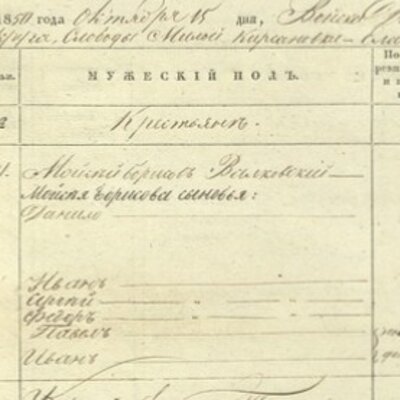 1850 года Октября 15 дня, Войска
Слободы Милой Кирсановки
МУЖЕСКІЙ ПОЛЪ.
Крестьянъ.
Мойсей Борисовъ Волковский
Мойсея Борисова сыновья:
Данило
Иванъ
Сергей
Федоръ
Павелъ
Иванъ